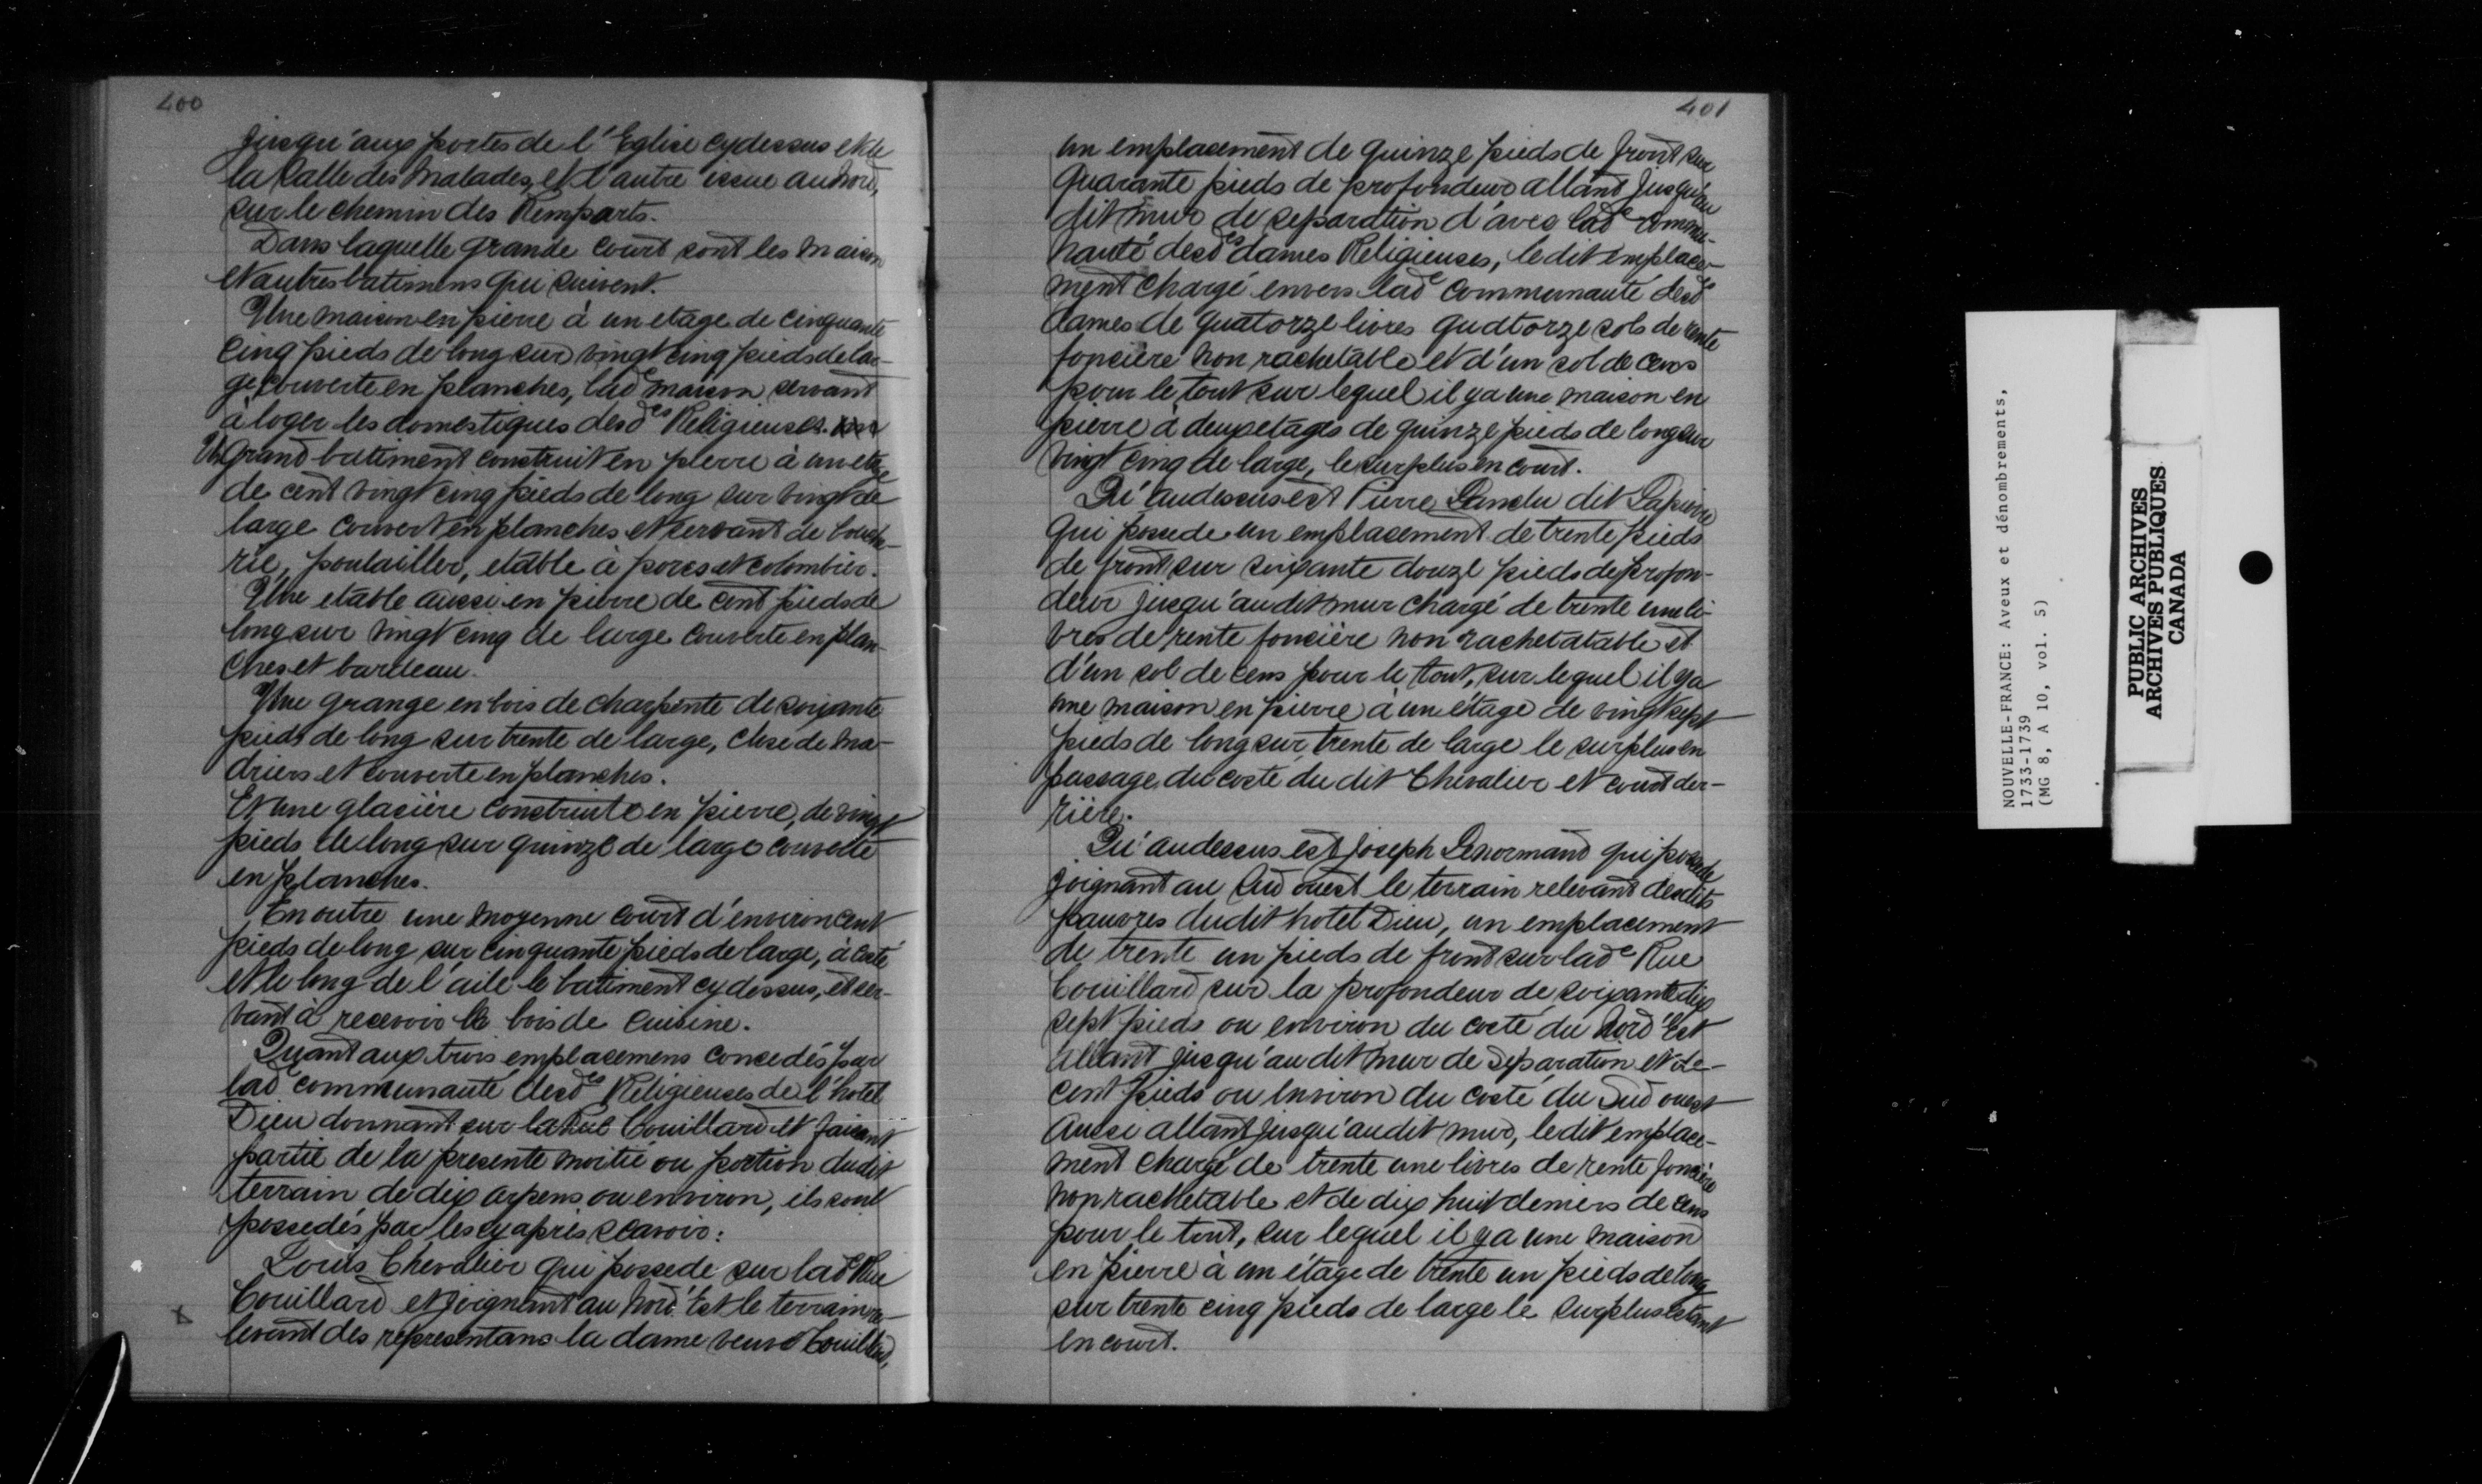 400
jusqu'aux portes de l'Eglise cydessus et de
la Salle des Malades, et d'autre issue au nord,
sur le chemin des Remparts.
Dans laquelle grande court sont les maison
et autres batimens qui suivent.
Une maison en pierre à un etage de cinquante
cinq pieds de long sur vingt cinq pieds de lar-
ge, couverte en planches, lad.e maison servant
à loger les domestiques desd.es Religieuses.
Un Grand batiment construit en pierre à un etage
de cent vingt cinq pieds de long sur vingt de
large couvert en planches et servant de bouche-
rie, poulailler, etable à porcs et colombier.
Une etable aussi en pierre de cent pieds de
long sur vingt cinq de large couverte en plan-
ches et bardeau.
Une grange en bois de charpente de soixante
pieds de long sur trente de large, close de ma-
driers et couverte en planches.
Et une glacière construite en pierre, de vingt
pieds de long sur quinze de large couverte
en planches.
En outre une moyenne court d'environ cent
pieds de long sur cinquante pieds de large, à costé
et le long de l'aile le batiment cy dessus, et ser-
vant à recevoir le bois de cuisine.
Quant aux trois emplacemens concedés par
lad.e communauté desd.es Religieuses de l'hotel
Dieu donnant sur la Rue Couillard et faisant
partie de la presente moitié ou portion dudit
terrain de dix arpens ou environ, ils sont
possedés par les cy après scavoir:
Louis Chevalier qui possede sur lad.e Rue
Couillard et joignant au Nord Est le terrain re-
levant des representans la dame veuve Couillard,
401
un emplacement de quinze pieds de front sur
quarante pieds de profondeur allant jusqu'au
dit mur de separation d'avec lad.e commu-
nauté desd.es dames Religieuses, le dit emplace-
ment chargé envers lad.e communauté desd.es
dames de quatorze livres quatorze sols de rente
foncière non rachetable et d'un sol de cens
pour le tout sur lequel il y a une maison en
pierre à deux etages de quinze pieds de long sur
vingt cinq de large, le surplus en court.
Qu'audessus est Pierre dit Lapierre
qui possede un emplacement de trente pieds
de front sur soixante douze pieds de profon-
deur jusqu'au dit mur chargé de trente une li-
vres de rente foncière non rachetatable et
d'un sol de cens pour le tout, sur lequel il y a
une maison en pierre à un étage de vingt sept
pieds de long sur trente de large le surplus en
passage du costé du dit Chevalier et court der-
rière.
Qu'audessus est Joseph Lenormand qui possede
joignant au Sud ouest le terrain relevant desdits
pauvres dudit hotel Dieu, un emplacement
de trente un pieds de front sur lad.e Rue
Couillard sur la profondeur de soixante dix
sept pieds ou environ du costé du Nord Est
allant jusqu'au dit mur de separation et de
cent pieds ou environ du costé du Sud ouest
aussi allant jusqu'au dit mur, le dit emplace-
ment chargé de trente une livres de rente foncière
non rachetable et de dix huit deniers de cens
pour le tout, sur lequel il y a une maison
en pierre à un étage de trente un pieds de long
sur trente cinq pieds de large le surplus estant
en court.
NOUVELLE-FRANCE: Aveux et dénombrements,
1733-1739
(MG 8, A 10, vol. 5)
PUBLIC ARCHIVES
ARCHIVES PUBLIQUES
CANADA